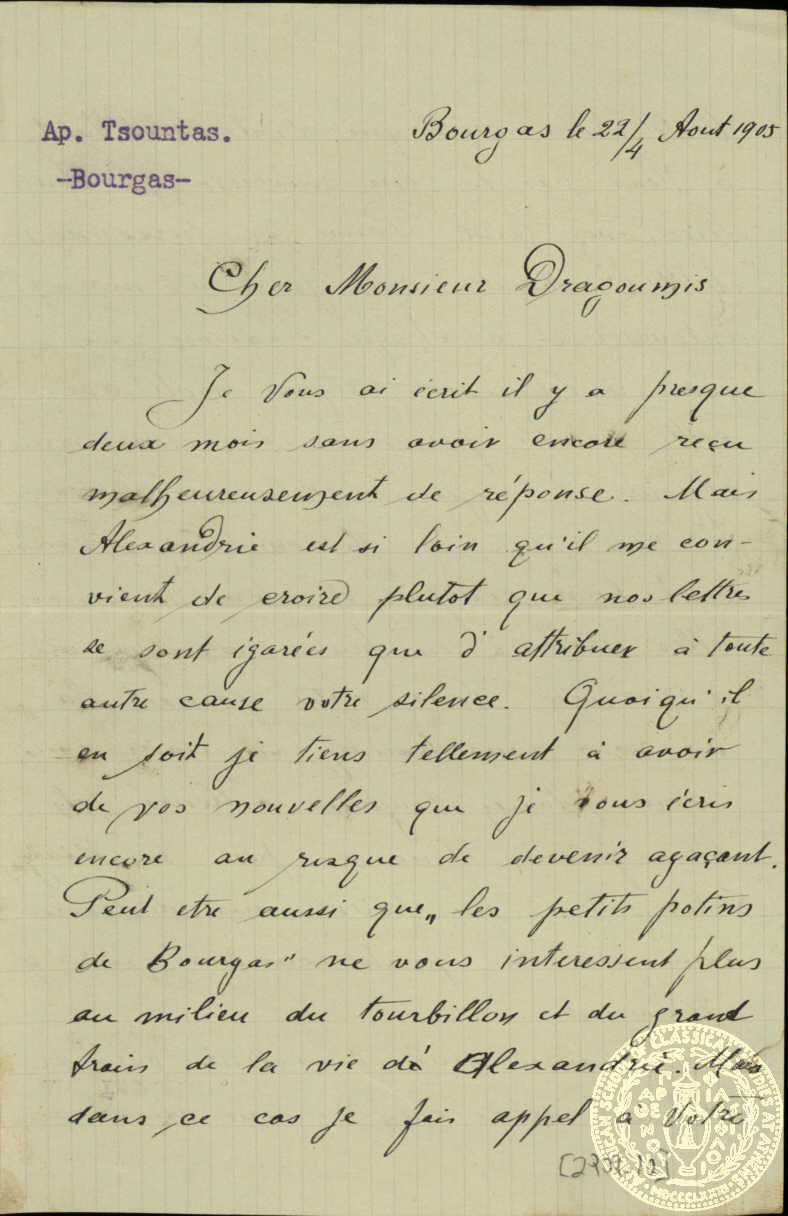 Ap. Tsountas.
-Bourgas-
Bourgas le 22/4 Aout 1905
Cher Monsieur Dragoumis
Je Vous ai écrit il y a presque
deux mois sans avoir encore reçu
malheureusement de réponse. Mais
Alexandrie est si loin qu'il me con-
vient de croire plutot que nos lettres
se sont igarées que d'attribuer à toute
autre cause votre silence. Quoiqu'il
en soit je tiens tellement à avoir
de vos nouvelles que je vous écris
encore au risque de devenir agaçant.
Peut etre aussi que „les petits potins
de Bourgas" ne vous interessent plus
au milieu du tourbillon et du grand
train de la vie d'Alexandrie. Mais
dans ce cas je fais appel à Votre